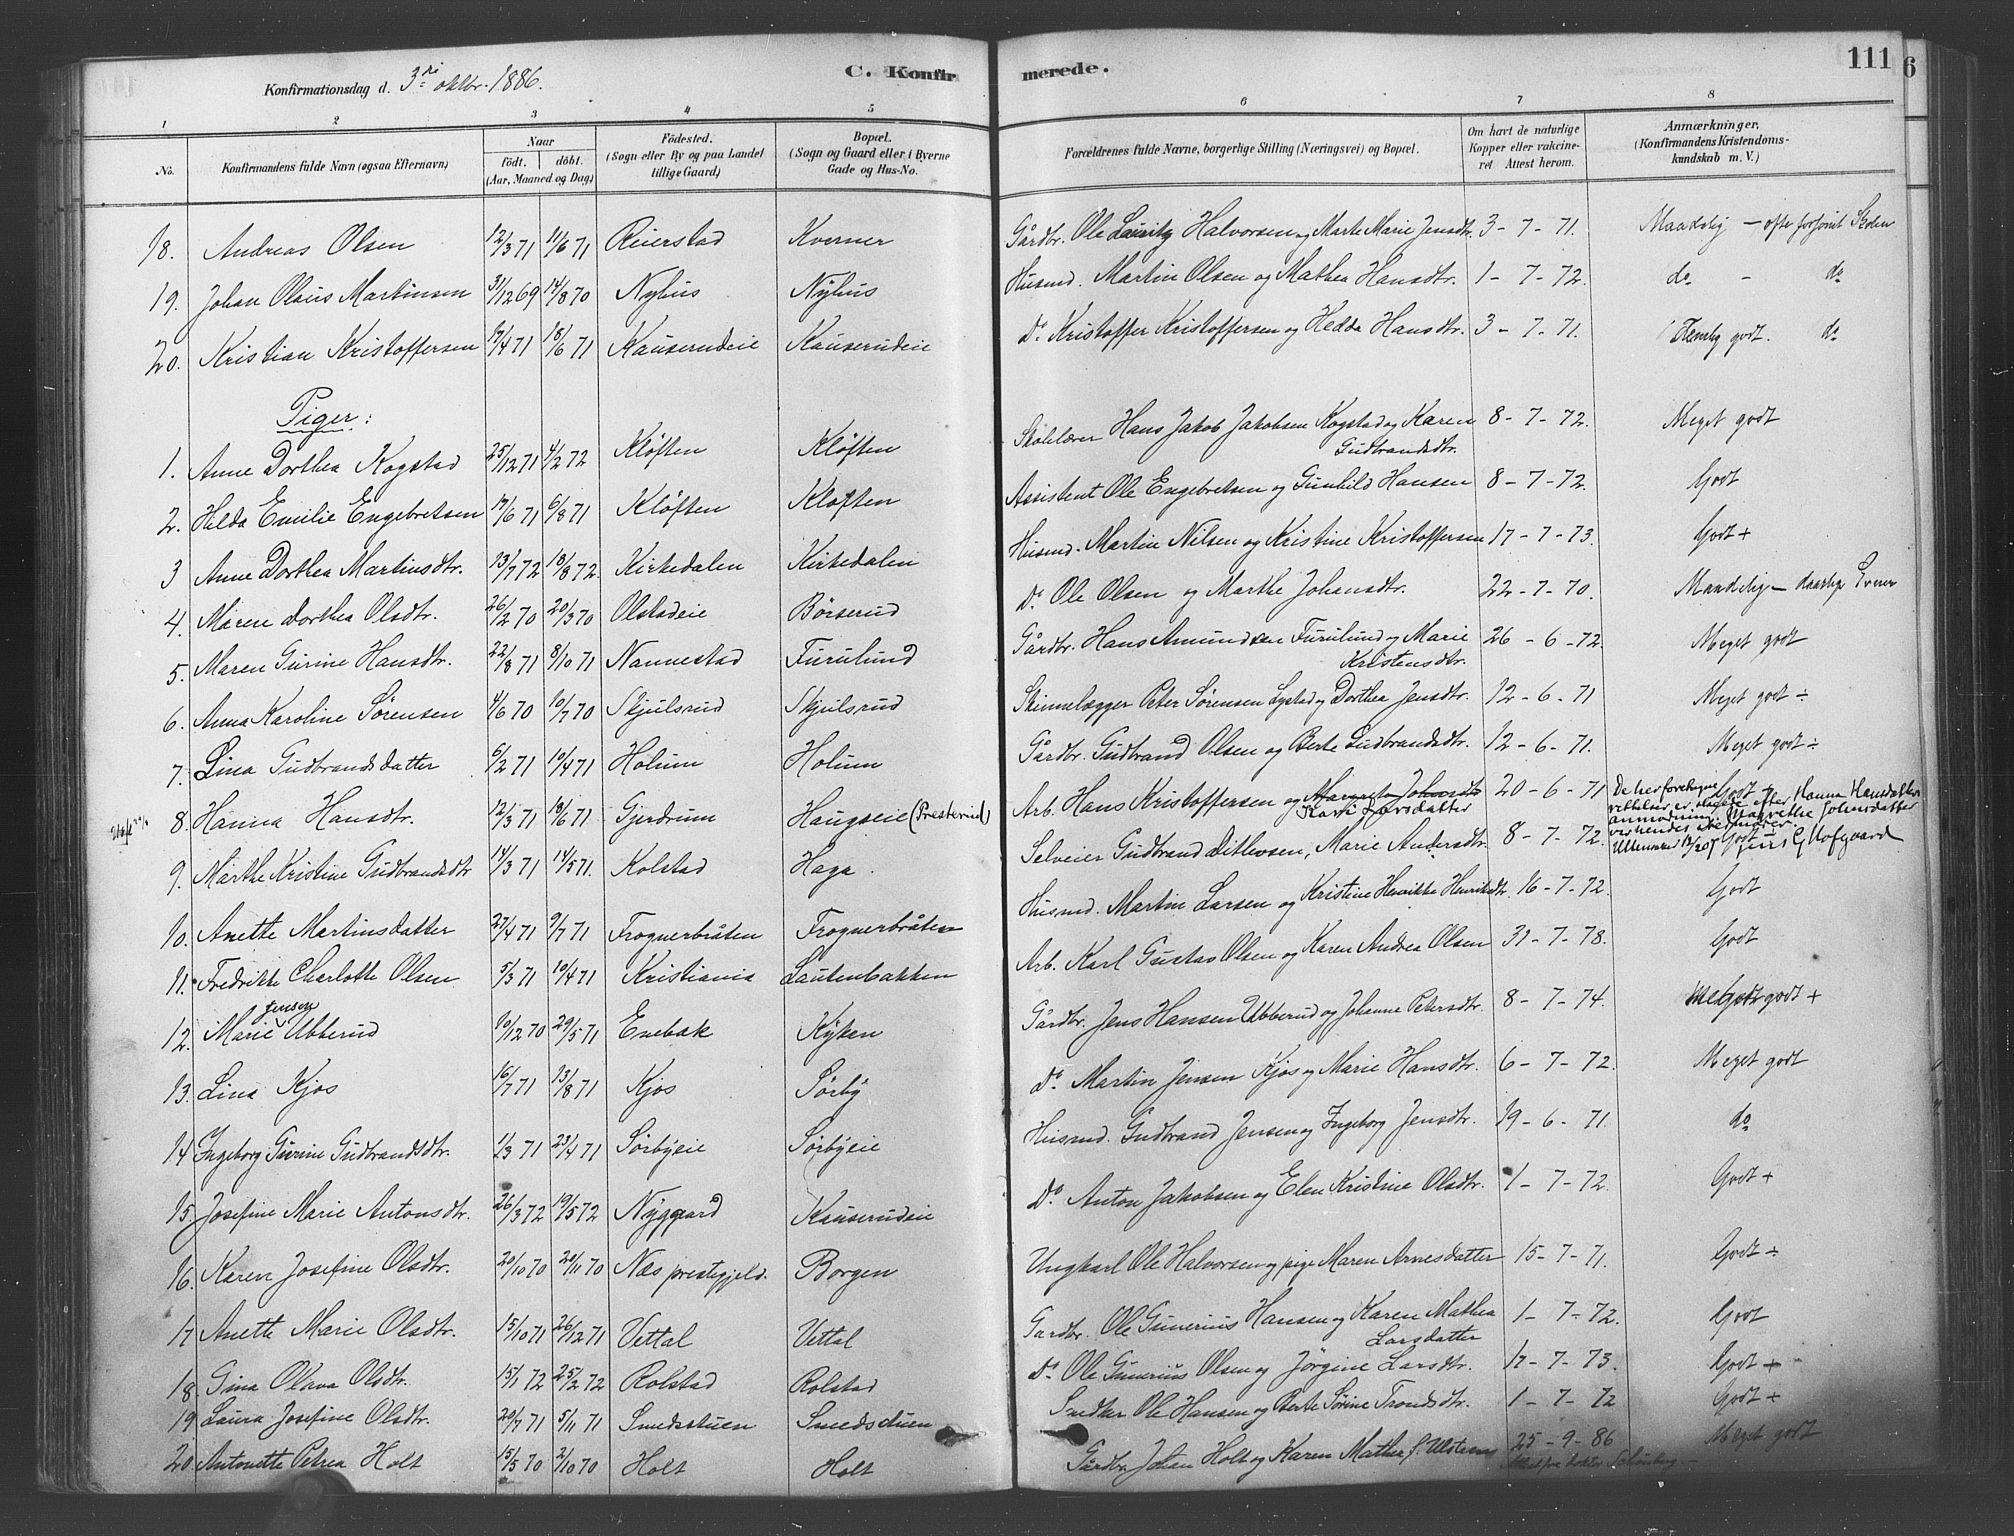 Konfirmationsdag d. 3die oktbr. 1886.
C. Konfir
merede.
111
6
1 2 3 4 5 6 7 8
No. Konfirmandens fulde Navn (ogsaa Efternavn) Naar födt. döbt. (Aar, Maaned og Dag) Födested. (Sogn eller By og paa Landet tillige Gaard) Bopæl. (Sogn og Gaard eller i Byerne Gade og Hus-No. Forældrenes fulde Navne, borgerlige Stilling (Næringsvei) og Bopæl. Om havt de naturlige Kopper eller vakcineret. Attest herom. Anmærkninger, (Konfirmandens Kristendomskundskab m. V.)
18. Andreas Olsen 12/3 71 11/6 71 Reierstad Kverner Gårdbr. Ole Lauritz Halvorsen og Marte Marie Jensdtr. 3-7-71. Maadelig – ofte forsömt Skolen
19. Johan Olaus Martinsen 31/12 69 14/8 70 Nyhus Nyhus Husmd. Martin Olsen og Mathea Hansdtr. 1-7-72. do – do
20. Kristian Kristoffersen 17/4 71 18/6 71 Kauserudeie Kauserudeie Do Kristoffer Kristoffersen og Hedda Hansdtr. 3-7-71. Temlig godt. do
Piger:
1. Anne Dorthea Kogstad 25/12 71 4/2 72 Kløften Kløften Skolelærer Hans Jakob Jakobsen Kogstad og Karen Gudbrandsdtr. 8-7-72. Meget godt
2. Hilda Emilie Engebretsen 17/6 71 6/8 71 Kløften Kløften Assistent Ole Engebretsen og Gunhild Hansen 8-7-72. Godt
3 Anne Dorthea Martinsdtr. 13/7 72 18/8 72 Kirkedalen Kirkedalen Husmd. Martin Nilsen og Kristine Kristoffersen 17-7-73. Godt +
4. Maren Dorthea Olsdtr. 26/2 70 20/3 70 Olstadeie Børserud Do Ole Olsen og Marthe Johansdtr. 22-7-70. Maadelig – daarlige Evner
5. Maren Gurine Hansdtr. 22/8 71 8/10 71 Nannestad Furulund Gårdbr. Hans Amundsen Furulund og Marie Kristensdtr. 26-6-72. Meget godt
6. Anna Karoline Sørensen 4/6 70 10/7 70 Skjulsrud Skjulsrud Skinnelægger Peter Sørensen Lystad og Dorthea Jensdtr. 12-6-71 Meget godt ÷
7. Lina Gudbrandsdatter 6/2 71 10/4 71 Holum Holum Gårdbr. Gudbrand Olsen og Berte Gudbrandsdtr. 12-6-71. Meget godt ÷
8. Hanna Hansdtr. 12/3 71 18/6 71 Gjerdrum Haugseie (Presterud) Arb. Hans Kristoffersen og Margrete Johansdtr Kari Larsdatter 20-6-71 Godt
De her foretagne rettelser er skeede efter Hanna Hansdatters anmodning. Margrethe Johnsdatter var hendes stedmoder. Ullensaker 12/20 Jens G. Hofgaard
9. Marthe Kristine Gudbrandsdtr 14/3 71 14/5 71. Kolstad Haga. Selveier Gudbrand Ditlevsen, Marie Andersdtr. 8-7-72. Godt
10. Anette Martinsdatter 27/4 71 9/7 71 Frognerbråten Frognerbråten Husmd. Martin Larsen og Kristine Henrikke Henriksdtr. 16-7-72. Godt
11. Fredrikke Charlotte Olsen 5/3 71 10/4 71 Kristiania Lautenbakken Arb. Karl Gustav Olsen og Karen Andrea Olsen 31-7-78. Godt
12. Marie Jensen Ubberud 10/12 70 29/5 71 Enebak Kyken Gårdbr. Jens Hansen Ubberud og Johanne Petersdtr. 8-7-74. Meget godt +
13. Lina Kjos 16/7 71 13/8 71 Kjos Sørby Do Martin Jensen Kjos og Marie Hansdtr. 6-7-72. Meget godt
14 Ingeborg Gurine Gudbrandsdtr. 1/3 71 23/4 71 Sørbyeie Sørbyeie Husmd. Gudbrand Jensen og Ingeborg Jensdtr. 19-6-71. do
15. Josefine Marie Antonsdtr. 26/3 72 19/5 72 Nygaard Kauserudeie Do Anton Jakobsen og Elen Kristine Olsdtr. 1-7-72. Godt +
16. Karen Josefine Olsdtr. 20/10 70 20/11 70 Næs prestegjeld. Borgen Ungkarl Ole Halvorsen og pige Maren Arnesdatter 15-7-71. Godt ÷
17 Anette Marie Olsdtr. 15/10 71 26/12 71 Vettal Vettal Gardbr. Ole Gunerius Hansen og Karen Mathea Larsdatter 1-7-72. Godt
18. Gina Olava Olsdtr. 15/1 72 25/2 72 Rolstad Rolstad Do Ole Gunerius Olsen og Jørgine Larsdtr. 17-7-73. Godt +
19. Laura Josefine Olsdtr. 20/7 71 5/11 71 Smedsstuen Smedsstuen Snedker Ole Hansen og Berte Sørine Trondsdtr. 1-7-72 Godt +
20. Antonette Petrea Holt 15/5 70 2/10 70 Holt Holt Gårdbr. Johan Holt og Karen Mathea f. 25-9-86 Meget godt